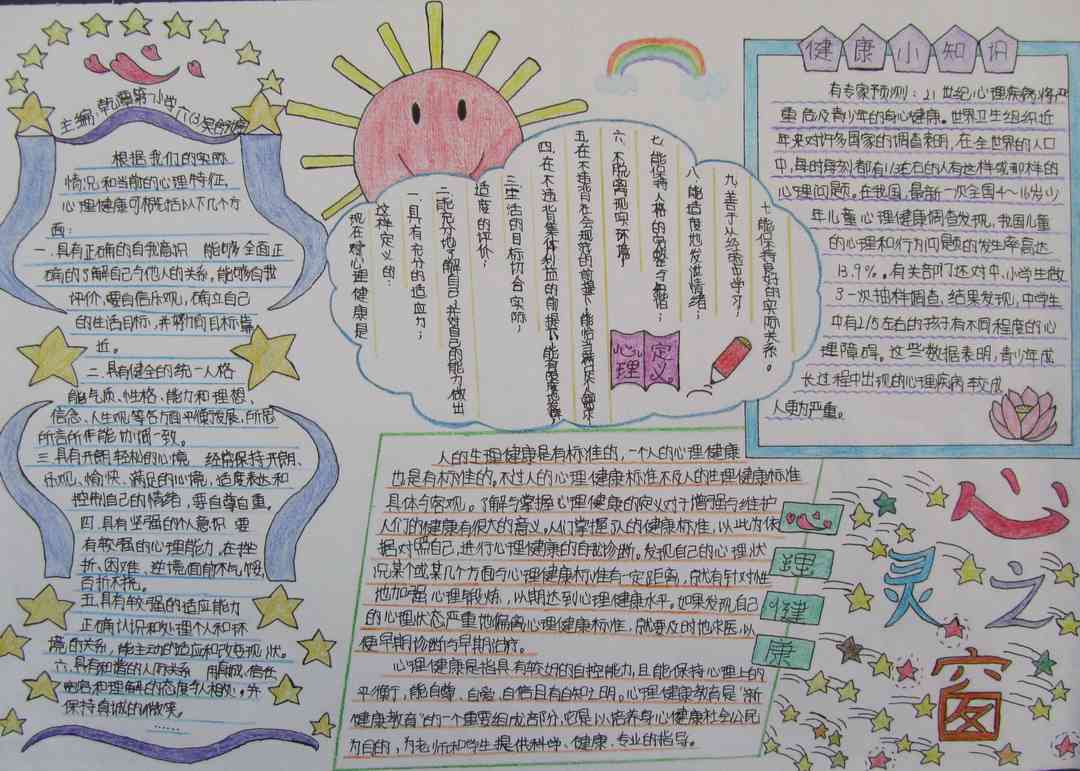 心
主编:乾潭第一小学六(1)吴
根据我们的实际
情况和当前的心理特征,
心理健康可概括以下几个方
面:
一.具有正确的自我意识 能够全面正
确的了解自己与他人的关系,能够自我
评价,要自信乐观,确立自己
的生活目标,并努力向目标靠
近。
二.具有健全的统一人格
能气质、性格、能力和理想、
信念、人生观等各方面平衡发展,所思
所言所作能协调一致。
三.具有开朗轻松的心境 经常保持开朗、
乐观、愉快、满足的心境,适度表达和
控制自己的情绪,要自尊自重。
四.具有坚强的个人意识 要
有较强的心理能力,在挫
折、困难、逆境面前不气馁,
百折不挠。
五.具有较强的适应能力
正确认识和处理个人和环
境的关系,能主动的适应和改变现状。
六.具有和谐的人际关系 用真诚、信任
宽容和理解的态度与人相处,并
保持真诚的微笑。
……
现在对心理健康是
这样定义的:
一.具有充分的适应力;
二.能充分地了解自己,并对自己的能力做出
适度的评价;
三.生活的目标切合实际;
四.在不违背集体利益的前提下,能有限度地发挥
五.在不违背社会规范的前提下,能恰当满足个人需求
六.不脱离现实环境;
七.能保持人格的完整与和谐;
八.能适度地发泄情绪;
九.善于从经验中学习;
十.能保持良好的实际关系。
心理 定义。
健康小知识
有专家预测:21世纪心理疾病将严
重危及青少年的身心健康。世界卫生组织近
年来对许多国家的调查表明,在全世界的人口
中,每时每刻都有1/3左右的人有这样或那样的
心理问题。在我国,最新一次全国4~16岁少
年儿童心理健康调查发现,我国儿童
的心理和行为问题的发生率高达
13.9%。有关部门还对中、小学生做
了一次抽样调查,结果发现,中学生
中有2/5左右的孩子有不同程度的心
理障碍。这些数据表明,青少年成
长过程中出现的心理疾病较成
人更为严重。
人的生理健康是有标准的,一个人的心理健康
也是有标准的。不过人的心理健康标准不及人的生理健康标准
具体与客观。了解与掌握心理健康的定义对于增强与维护
人们的健康有很大的意义。人们掌握了人的健康标准,以此为依
据对照自己,进行心理健康的自我诊断。发现自己的心理状
况某个或某几个方面与心理健康标准有一定距离,就有针对性
地加强心理锻炼,以期达到心理健康水平。如果发现自己
的心理状态严重地偏离心理健康标准,就要及时地求医,以
便早期诊断与早期治疗。
心理健康是指具有较好的自控能力,且能保持心理上的
平衡,能自尊、自爱、自信且有自知之明。心理健康教育是“新
健康教育”的一个重要组成部分,它是以培养身心健康社会公民
为目的,为老师和学生提供科学、健康、专业的指导。
心
理
健
康
心
灵之
窗